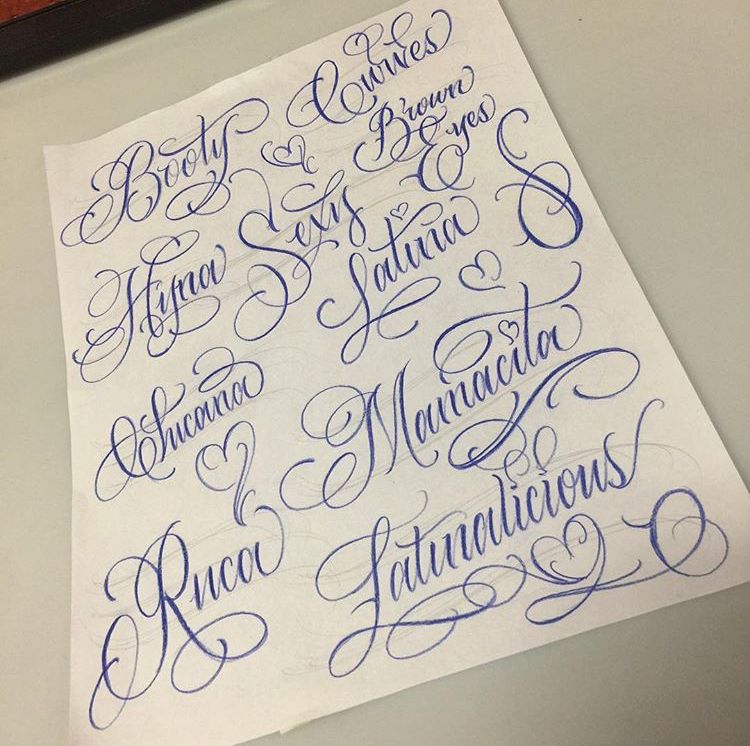 Booty Curves
Brown
Eyes
Hyna Sexy
Latina
Chicana Mamacita
Ruca Latinalicious